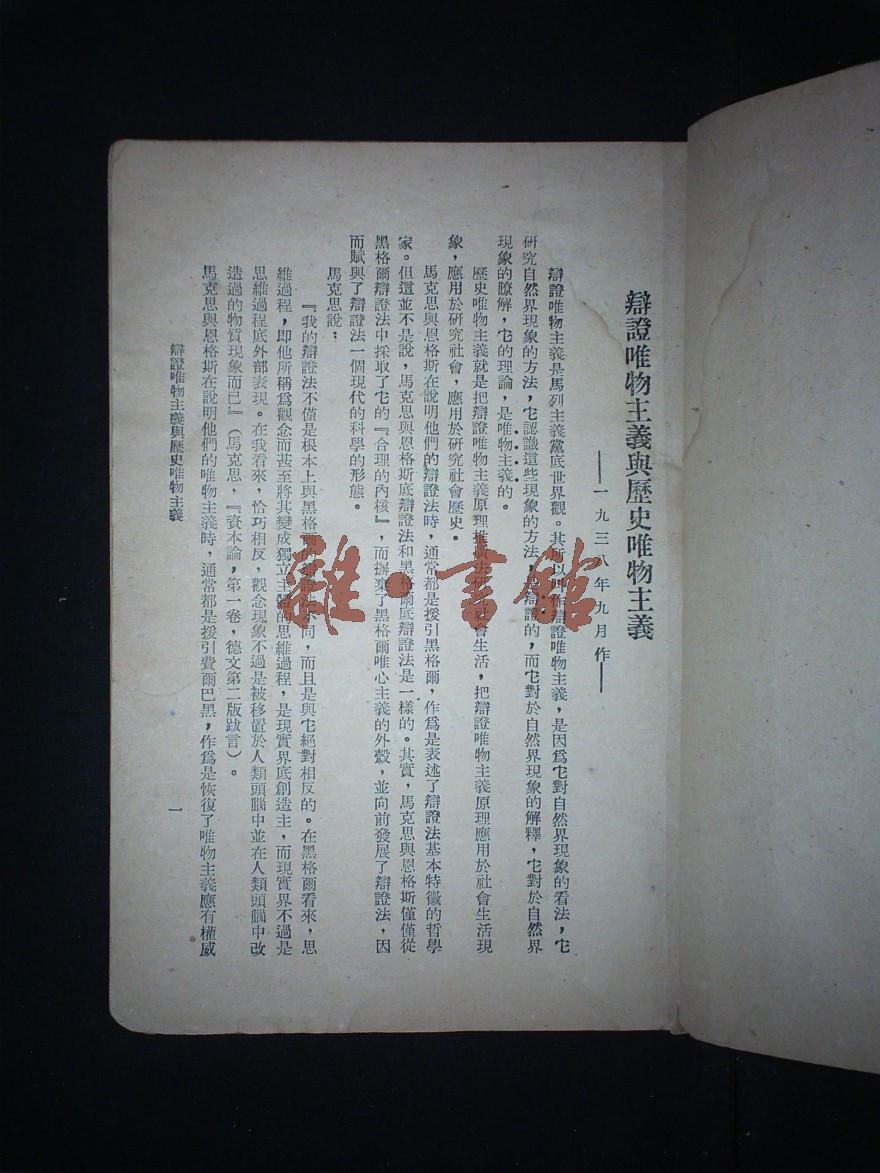 辯證唯物主義與歷史唯物主義
——一九三八年九月作——
辯證唯物主義是馬列主義黨底世界觀。其所以叫作辯證唯物主義，是因爲它對自然界現象的看法，它
研究自然界現象的方法，它認識這些現象的方法，是辯證的，而它對於自然界現象的解釋，它對於自然界
現象的瞭解，它的理論，是唯物主義的。
歷史唯物主義就是把辯證唯物主義原理推廣去研究社會生活，把辯證唯物主義原理應用於社會生活現
象，應用於研究社會，應用於研究社會歷史。
馬克思與恩格斯在說明他們的辯證法時，通常都是援引黑格爾，作爲是表述了辯證法基本特徵的哲學
家。但這並不是說，馬克思與恩格斯底辯證法和黑格爾底辯證法是一樣的。其實，馬克思與恩格斯僅僅從
黑格爾辯證法中採取了它的『合理的內核』，而摒棄了黑格爾唯心主義的外殼，並向前發展了辯證法，因
而賦與了辯證法一個現代的科學的形態。
馬克思說：
『我的辯證法不僅是根本上與黑格爾的辯證法不同，而且是與它絕對相反的。在黑格爾看來，思
維過程，即他所稱爲觀念而甚至將其變成獨立主體的思維過程，是現實界底創造主，而現實界不過是
思維過程底外部表現。在我看來，恰巧相反，觀念現象不過是被移置於人類頭腦中並在人類頭腦中改
造過的物質現象而已』（馬克思，『資本論，第一卷，德文第二版跋言）。
馬克思與恩格斯在說明他們的唯物主義時，通常都是援引費爾巴黑，作爲是恢復了唯物主義應有權威
辯證唯物主義與歷史唯物主義
一
雜·書館